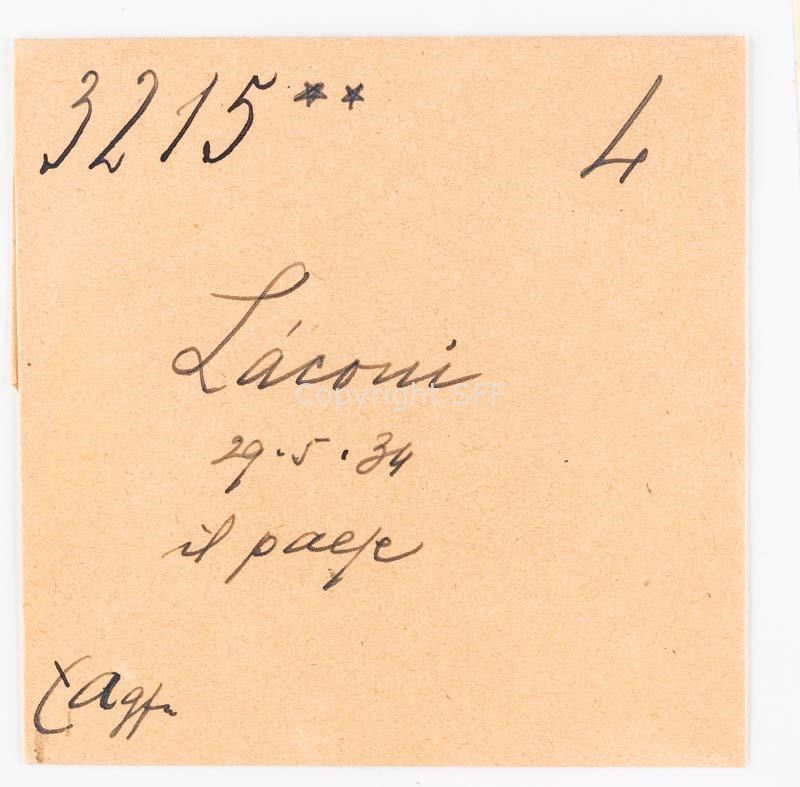 3215** 4
Láconi
Copyright SFF
29.5.34
il paese
Agfa